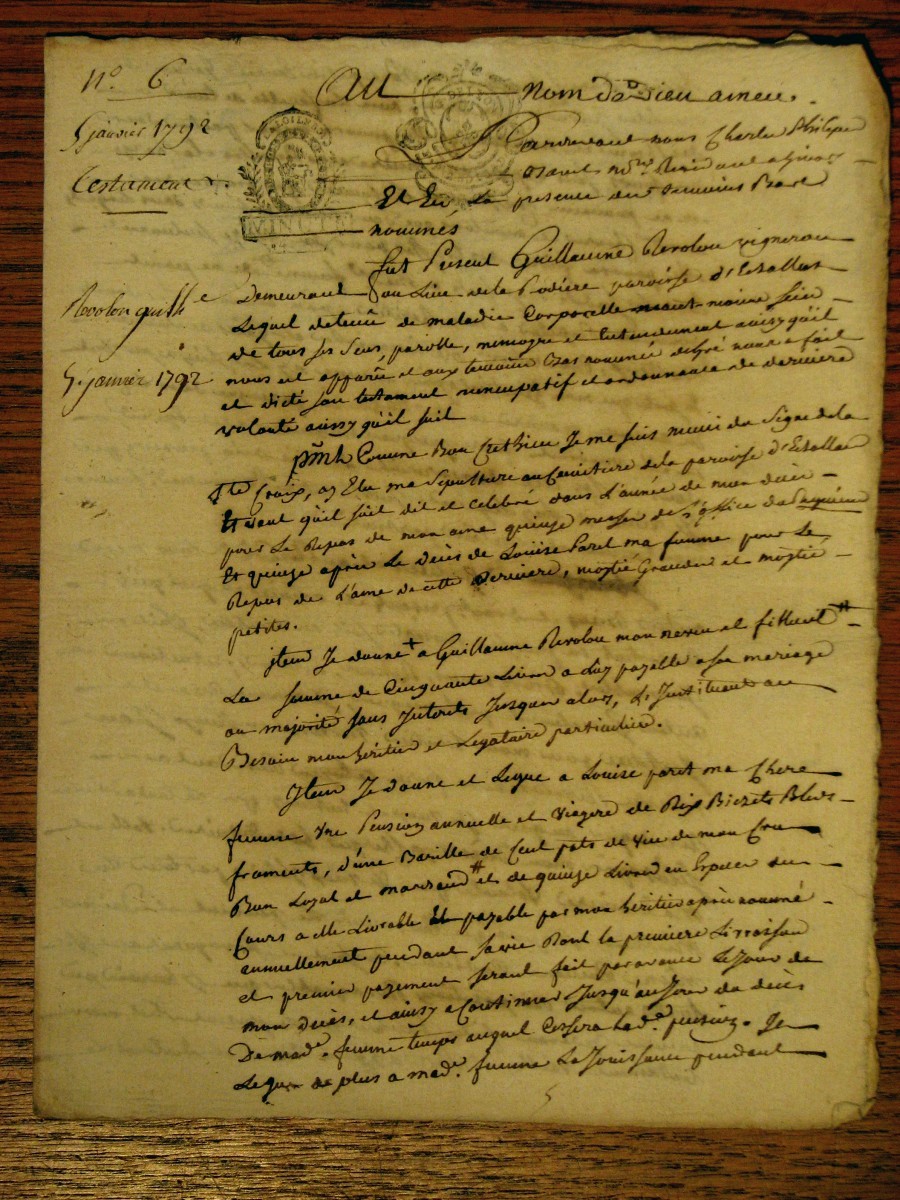 N.º 6
5 janvier 1792
Testament
Revolon guill.e
5 janvier 1792
Au nom de Dieu amen.
Pardevant nous Charles Philippe
no.re
Et En La presence des Temoins Bas
nommés
fut Present Guillaume Revolon vigneron
Demeurant au Lieu de la paroisse d'Estallas
Lequel detenû de maladie Corporelle sein
de tous ses Sens, parolle, memoyre et Entendement ainsy qu'il
nous est apparû et aux temoins Bas nommés de gré nous a fait
et dicté son testament nuncupatif et ordonnance de derniere
volonté ainsy qu'il suit
p.mt Comme Bon Crethien Je me suis muni du Signe de la
S.te Croix, ay Elu ma Sepulture au Cimitiere de la paroisse d'Estallas
Et veut qu'il soit dit et Celebré dans L'année de mon décès
pour Le Repos de mon ame quinze messes de L'office du
Et quinze après Le Decès de Louise Paret ma femme pour Le
Repos de L'ame de cette derniere, moytié Grandes et moytié
petites.
jtem Je donne + a Guillaume Revolon mon neveu et filleul #
La somme de Cinquante Livres a Luy payable a son mariage
ou majorité sans Interets Jusques alors, L'Instituant au
Besoin mon héritier et Legataire particulier.
Jtem Je donne et Legue a Louise paret ma Chere
femme Une Pension annuelle et viagere de Dix Bichets Bled
froment, d'une Barille de Cent pots de vin de mon Cru
Bon Loyal et marchand # et de quinze Livres en Especes du
Cours a elle Livrable Et payable par mon heritier après nommé
annuellement pendant sa vie Dont la premiere Livraison
et premier payement seront fait par avance Le Jour de
mon Decès, et ainsy a Continuer Jusqu'au Jour du decès
De mad.e femme temps auquel Cessera lad.e pension. Je
Legue de plus a mad.e femme La Jouissance pendant